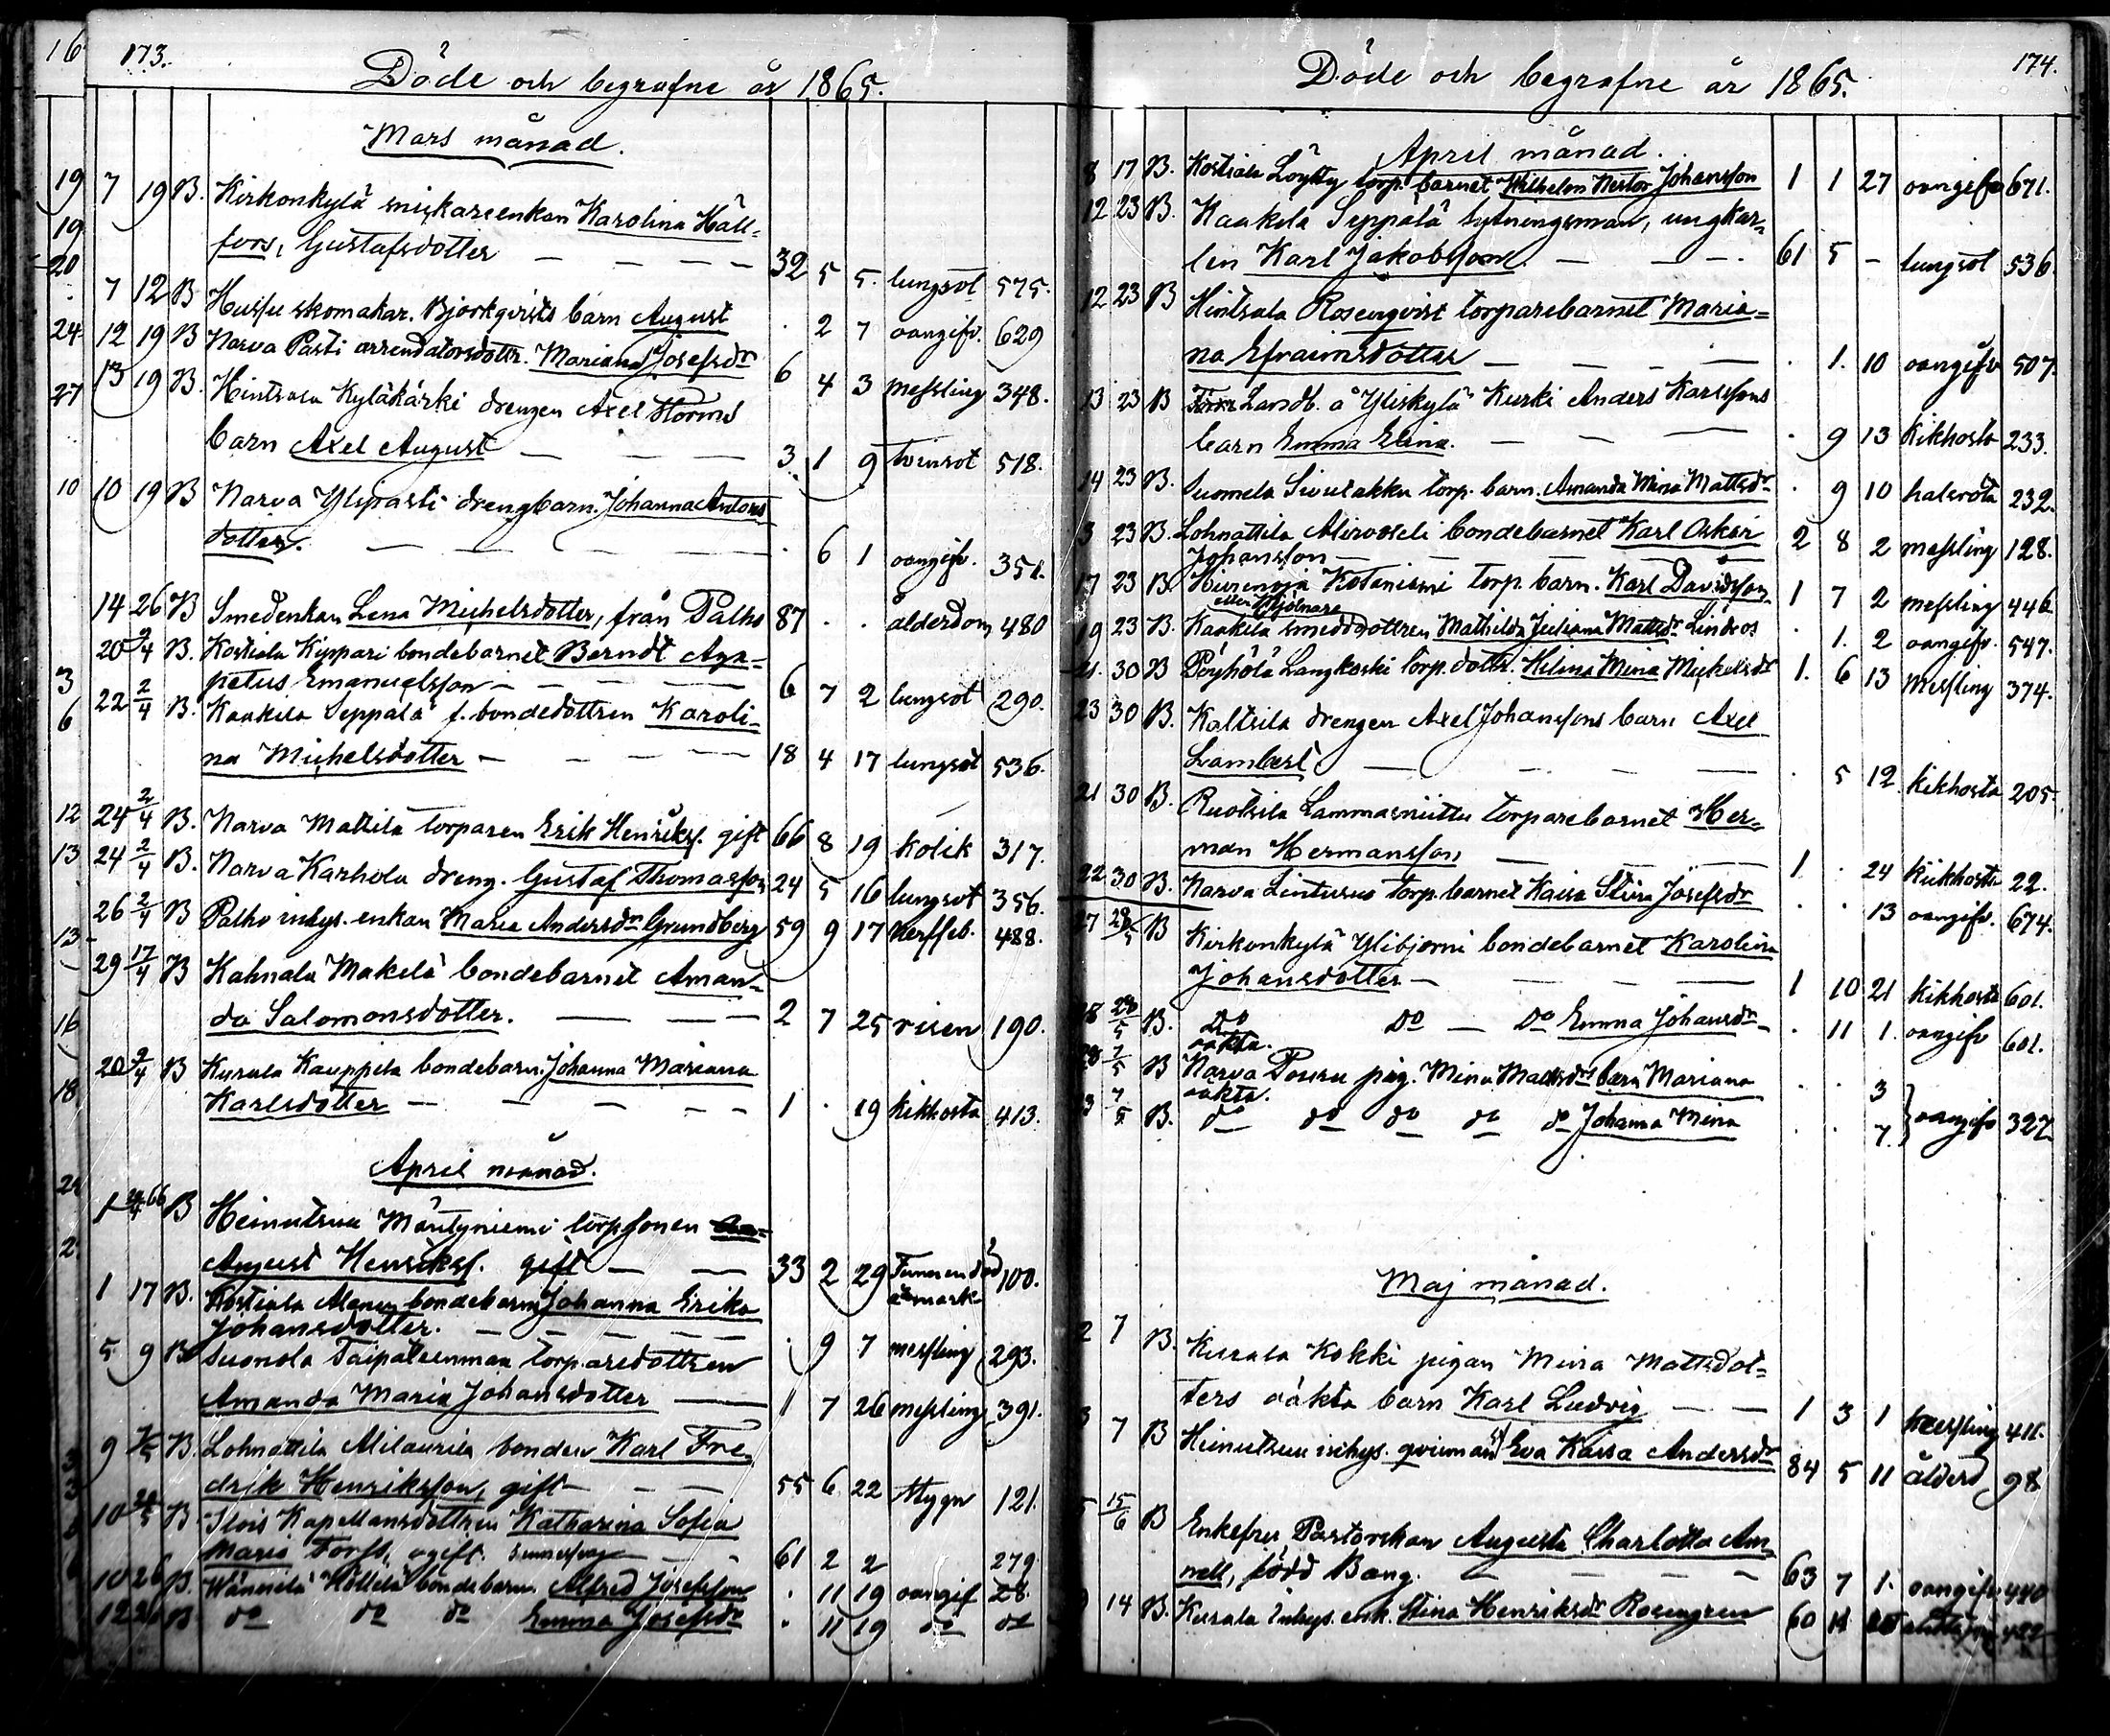 173.
Döde och begrafne år 1865.
Mars månad.
7 19 B. Kirkonkylä snickareenkan Karolina Häll-
fors, Gustafsdotter — — — 32 5 5. lungsot 575.
7 12 B Huifu skomakar. Bjorkqvists barn August . 2 7 oangifv. 629
12 19 B Narva Pasti arrendatorsdottr. Mariana Josefsdr 6 4 3 messling 348.
13 19 B. Hintsala Kyläkärki drengen Axel Storms
barn Axel August — — — 3 1 9 tvinsot 518.
10 19 B Narva Ylipasti drengbarn. Johanna Antons
dotter. — — — — . 6 1 oangifv. 351.
14 26 B Smedenkan Lena Michelsdotter, från Palho 87 . . ålderdom 480
20 2/4 B. Kostiala Kippari bondebarnet Berndt Aga-
petus Emanuelsson — — — 6 7 2 lungsot 290.
22 2/4 B. Kaakila Seppälä f. bondedottren Karoli-
na Michelsdotter — — — 18 4 17 lungsot 536.
24 2/4 B. Narva Mattila torparen Erik Henriksf. gift 66 8 19 Kolik 317.
24 2/4 B. Narva Karhola dreng. Gustaf Thomasson 24 5 16 lungsot 356.
26 2/4 B Palho inhys. enkan Maria Andersdr Grundberg 59 9 17 Nerffeb. 488.
29 17/4 B Kahnala Makelä bondebarnet Aman-
da Salomonsdotter. — — — 2 7 25 risen 190.
20 2/4 B Kurala Kauppila bondebarn. Johanna Mariana
Karlsdotter — — — — 1 . 19 Kikhosta 413.
April månad.
1 66 B Heinutsuu Mäntyniemi torpsonen
August Henriksf. gift — — 33 2 29 Funnen död 100.
å mark
1 17 B. Kostiala Alanen bondebarn Johanna Erika
Johansdotter. — — — — . 9 7 messling 293.
5 9 B Suonola Taipaleenmaa torparedottren
Amanda Maria Johansdotter — 1 7 26 messling 391.
9 B. Lohnattila Alilaurila bonden Karl Fre-
drik Henriksson, gift — — — 55 6 22 Stygn 121.
10 B Ilois Kapellansdottren Katharina Sofia
Maria Torst, ogift. — — 61 2 2 279
10 26 B. Wännilä Kölleli bondebarn Alfred Josefsson . 11 19 oangif 28.
12 26 B do do do Emma Josefsdr . 11 19 do do
174.
Döde och begrafne år 1865.
April månad.
8 17 B. Kostiala Löytty torp. barnet Wilhelm Nestor Johansson 1 1 27 oangifv 671.
12 23 B. Kaakila Seppälä sytningsman, ungkar-
len Karl Jakobsson. — — 61 5 — lungsot 536.
12 23 B Hintsala Rosenqvist torparebarnet Maria-
na Efraimsdotter — — — . 1. 10 oangifv 507.
13 23 B Landb. å Yliskylä Kurki Anders Karlssons
barn Emma Elina. — — — . 9 13 Kikhosta 233.
14 23 B. Suomela Sivulakka torp. barn. Amanda Mina Mattsdr . 9 10 halsröta 232.
3 23 B. Lohnattila Alirooseli bondebarnet Karl Oskar 2 8 2 messling 128.
Johansson —
17 23 B. Hirvenoja Kotaniemi torp. barn. Karl Davidsson 1 7 2 messling 446
eller Mjölnare
19 23 B. Kaakila smeddottren Mathilda Juliana Mattsdr Lindroos . 1. 2 oangifv. 547.
21. 30 B Pöyhölä Langkoski torp. dottr. Helina Mina Michelsdr 1. 6 13 Messling 374.
23 30 B. Kaltsila drengen Axel Johanssons barn Axel
Lambert — — — . 5 12 kikhosta 205.
21 30 B. Ruotsila Lammasniittu torparebarnet Her-
man Hermansson — — 1 . 24 Kikhosta 22.
22 30 B. Narva Linturus torp. barnet Kaisa Stina Josefsdr . . 13 oangifv. 674.
27 28/5 B Kirkonkylä Ylibjorni bondebarnet Karolina
Johansdotter — — — 1 10 21 kikhosta 601.
28/5 B. do do — do Emma Johansdr — . 11 1. oangifv 601.
oäkta.
7/5 B Narva Pouru pig. Mina Mattsdrs barn Mariana . . 3
oäkta.
7/5 B. do do do do do Johanna Mina . . 7. oangifv 327
Maj månad.
2 7 B. Kurala Kokki pigan Mina Mattsdot-
ters oäkta barn Karl Ludvig — — 1 3 1 messling 411.
3 7 B Heinutsuu inhys. qvinnan Eva Kaisa Andersdr 84 5 11 ålderd 98
5 15/6 B Enkefru, Pastorskan Augusta Charlotta Am-
nell, född Bang. — — — 63 7 1. oangifv 440
14 B. Kurala Inhys. enk. Stina Henriksdr Rosengren 60 11